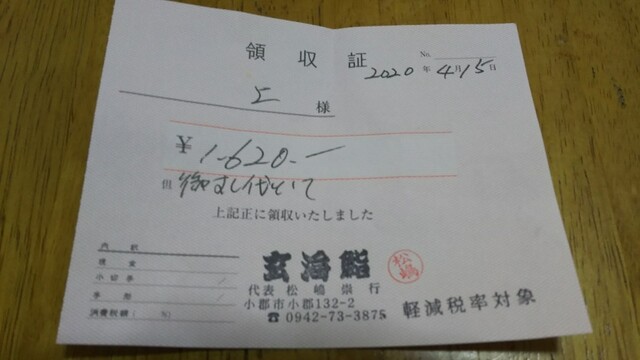 領収証
No.
2020年4月15日
上様
¥1,620.-
但 御すし代として
上記正に領収いたしました
内訳
現金
小切手
手形
消費税額( %)
玄海鮨
松嶋
代表 松嶋崇行
小郡市小郡132-2
☎0942-73-3875
軽減税率対象